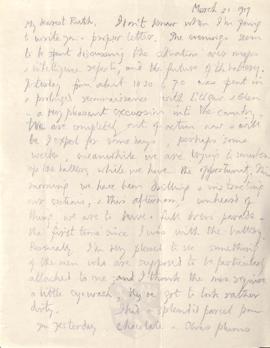 March 21. 1917
My dearest Ruth, I don't know when I'm going
to write you a proper letter. The evenings seem
to be spent discussing the situation over maps
& intelligence reports, and the future of the battery.
Yesterday from about 10.30 to 7.0 was spent in
a prolonged reconnaissance with
– a very pleasant excursion into the country.
We are completely out of action now & will
be I expect for some days, perhaps some
weeks, meanwhile we are trying to
up the battery while we have the opportunity. This
morning we have been drilling & instructing
our sections, & this afternoon, unheard of
thing, we are to have full dress parade –
the first time since I was with the battery.
Personally I'm very pleased to see something
of the men who are supposed to be particularly
attached to me, and I think the men require
a little eyewash, they've got to look rather
dirty. This splendid parcel from
you yesterday chocolate – plums